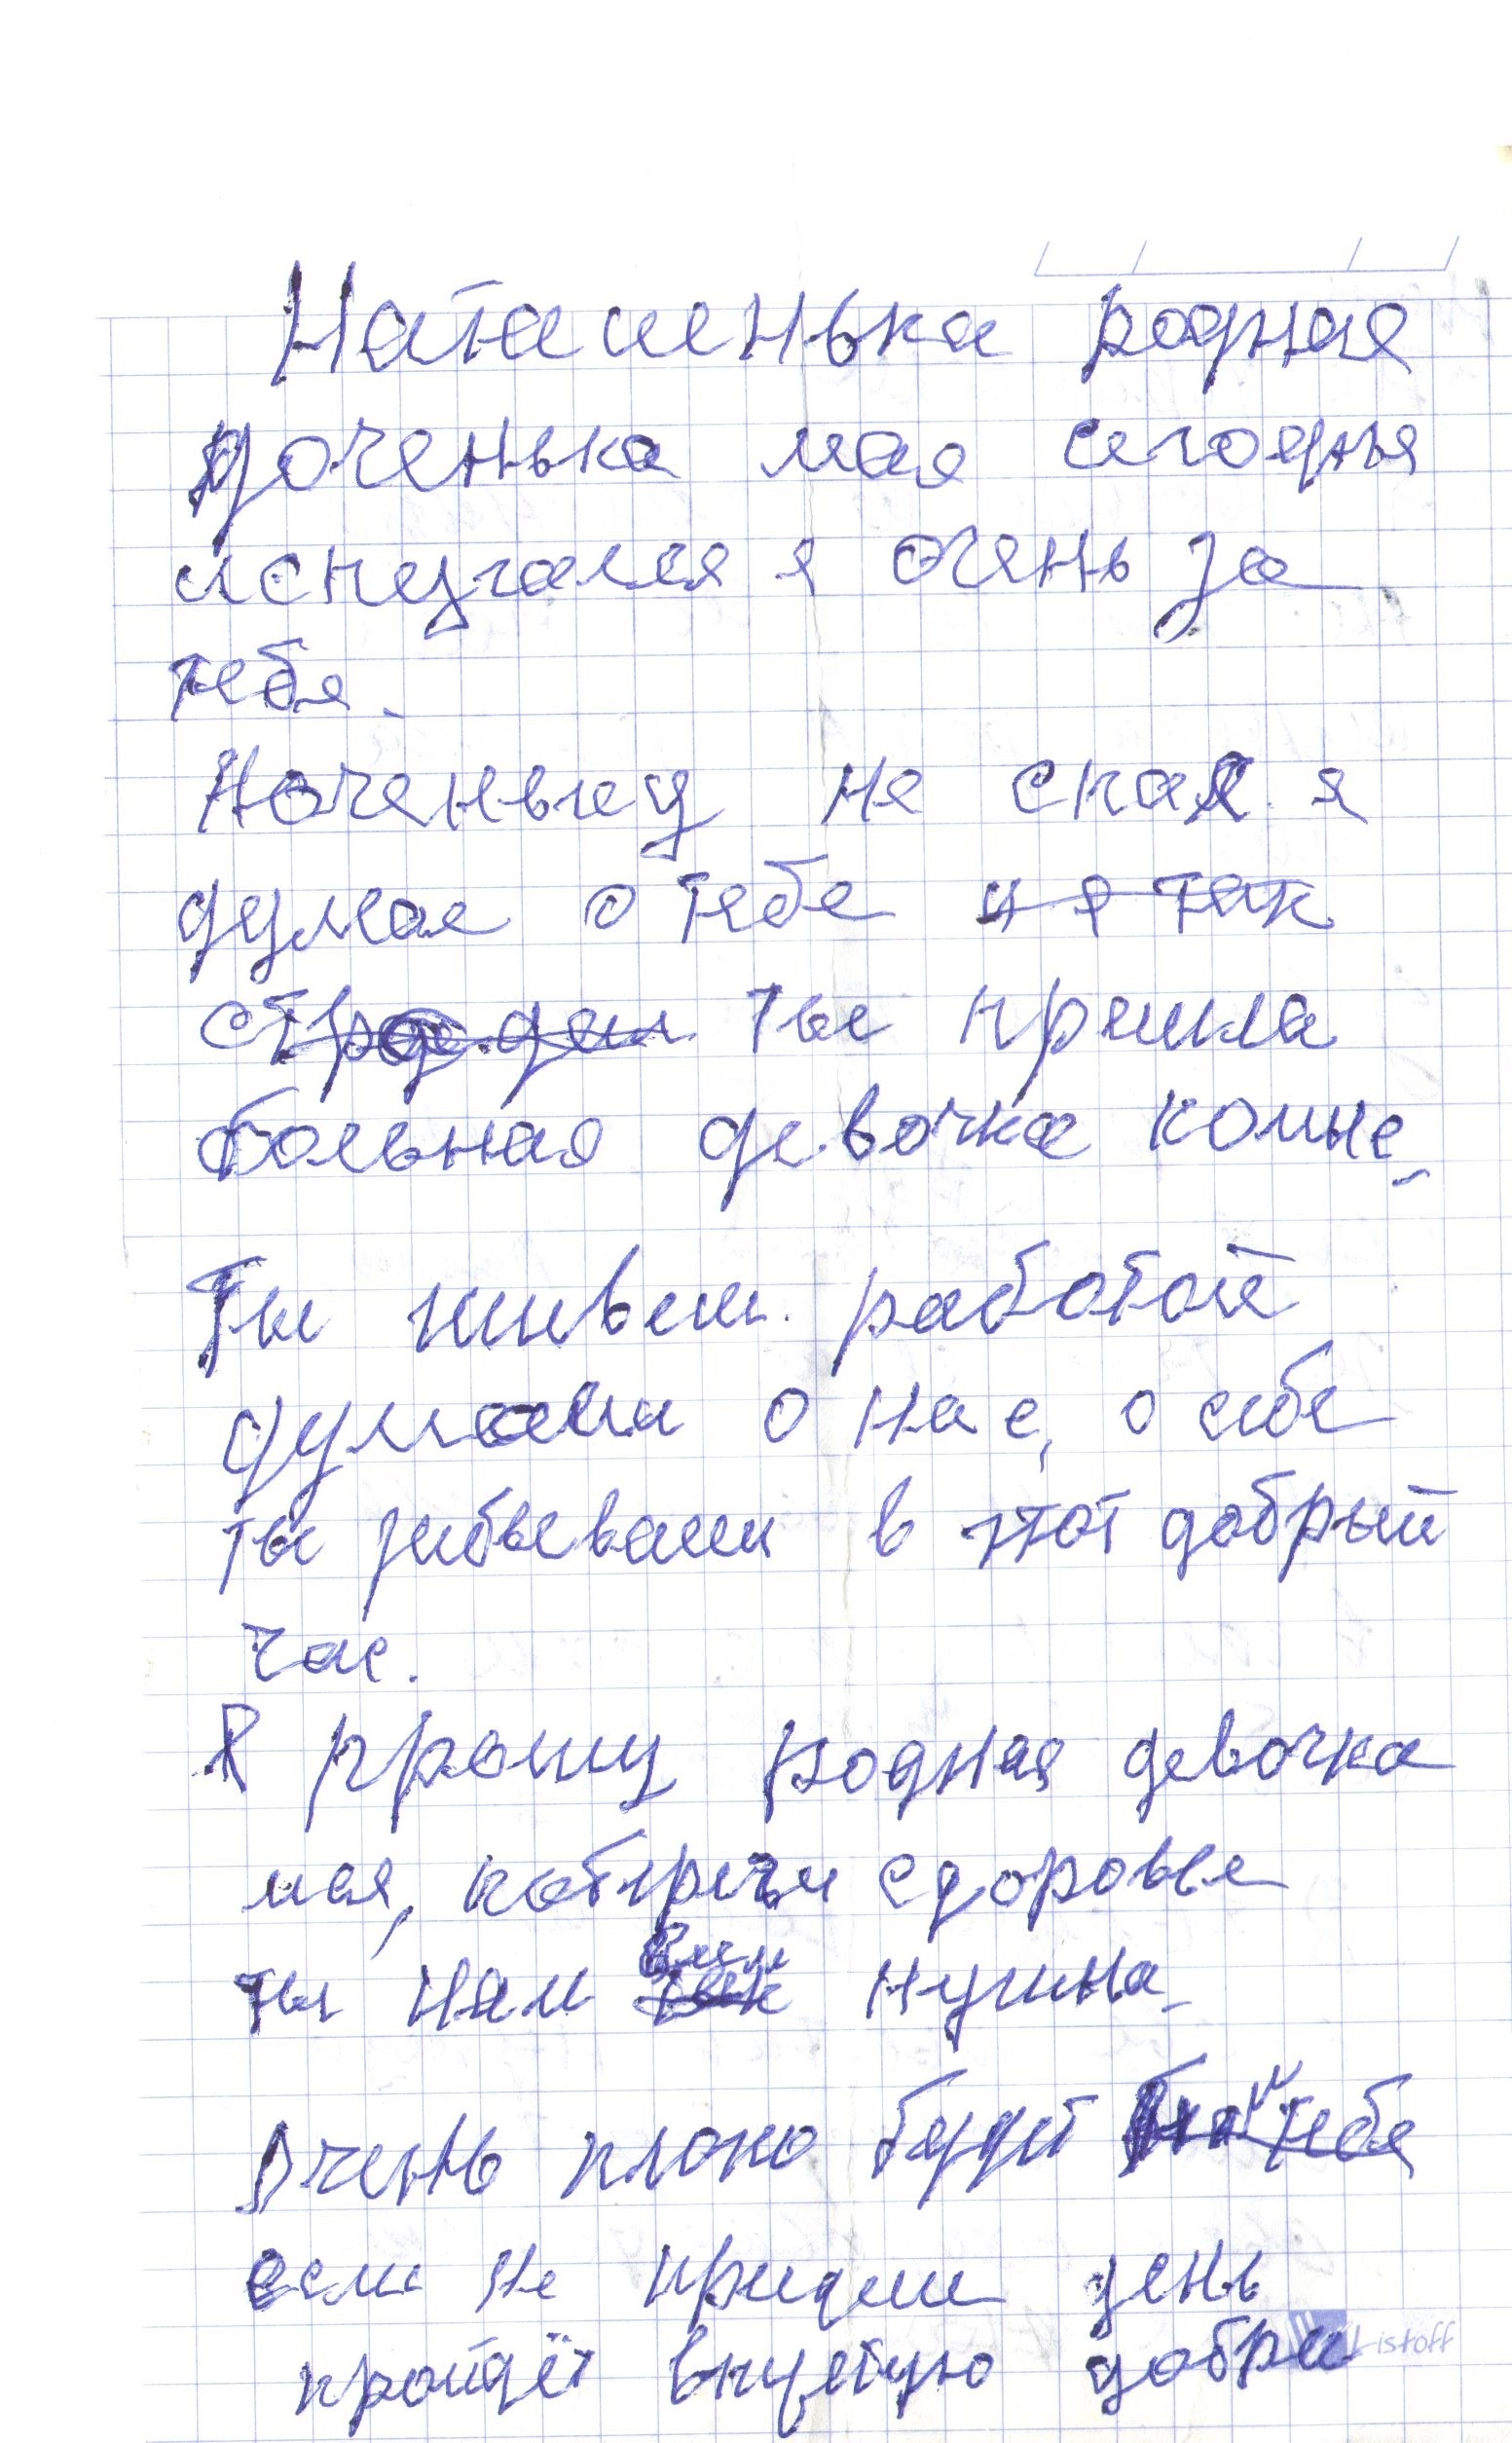 Наташенька родная
доченька мая сегодня
испугался я очень за
тебя.
Ноченьку не спал я
думая о тебе и я так
страдал ты пришла
больная девочка комне.
Ты живеш работой
думаеш о нас, о себе
ты забываеш в этот добрый
час.
Я прошу родная девочка
мая, побереги здоровье
ты нам так всем нужна.
Очень плохо будет тебя
если не придеш день
пройдёт впустую добри
Listoff